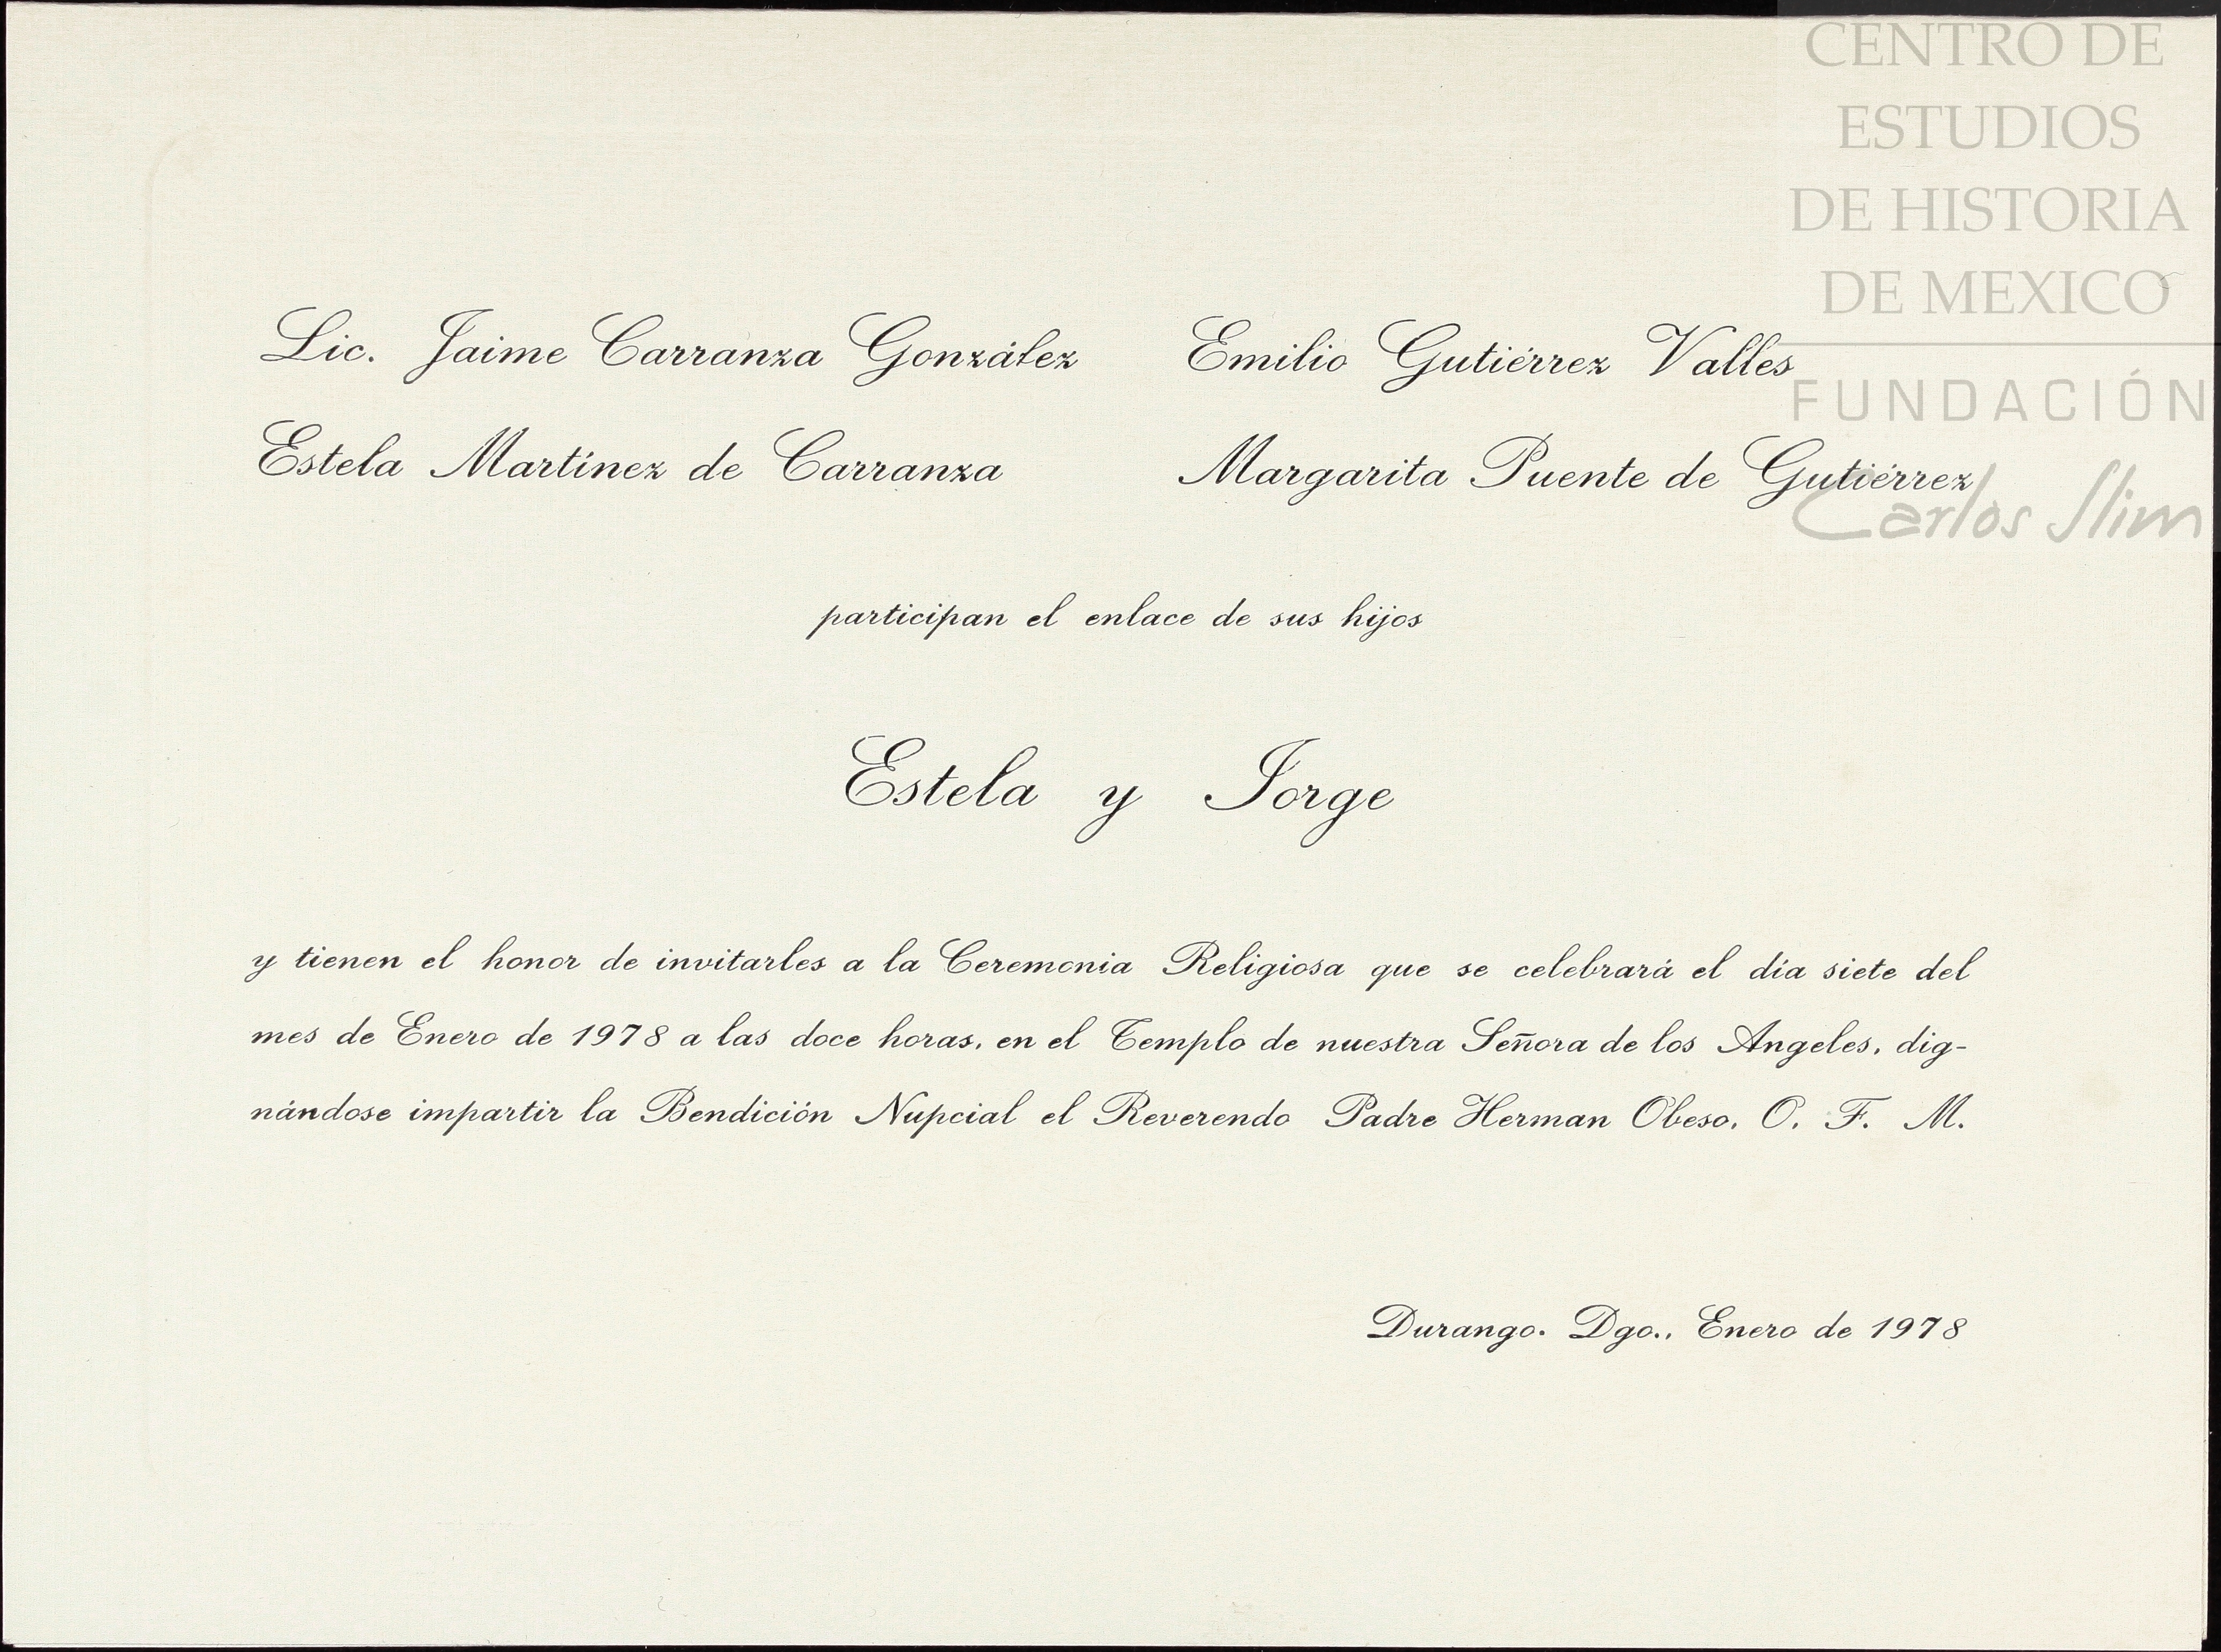 CENTRO DE
ESTUDIOS
DE HISTORIA
DE MEXICO
FUNDACIÓN
Carlos Slim
Lic. Jaime Carranza González
Estela Martínez de Carranza
Emilio Gutiérrez Valles
Margarita Puente de Gutiérrez
participan el enlace de sus hijos
Estela y Jorge
y tienen el honor de invitarles a la Ceremonia Religiosa que se celebrará el día siete del
mes de Enero de 1978 a las doce horas, en el Templo de nuestra Señora de los Angeles, dig-
nándose impartir la Bendición Nupcial el Reverendo Padre Herman Obeso, O. F. M.
Durango. Dgo., Enero de 1978